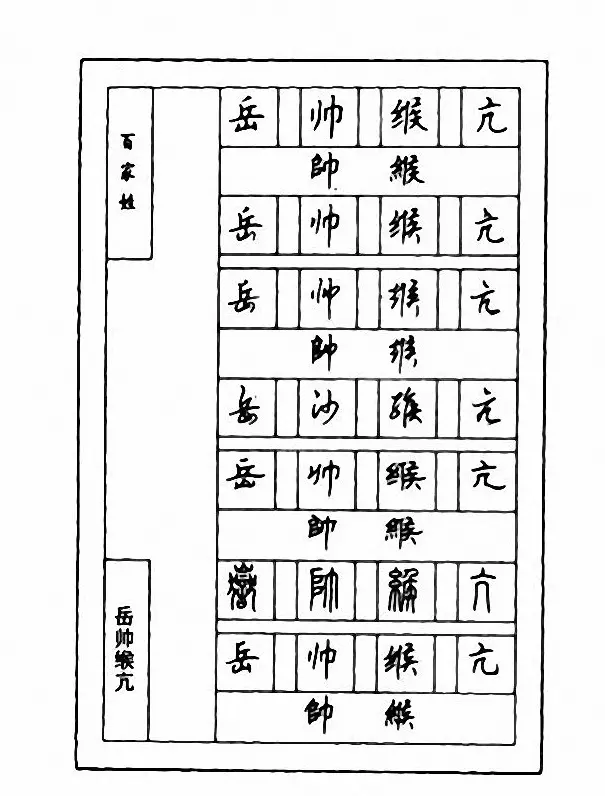 百家姓
岳 帅 缑 亢
帥 緱
岳 帅 缑 亢
岳 帅 缑 亢
帥 缑
岳 帅 缑 亢
岳 帅 缑 亢
帥 緱
嶽 帥 緱 亢
岳 帅 缑 亢
帥 緱
岳帅缑亢